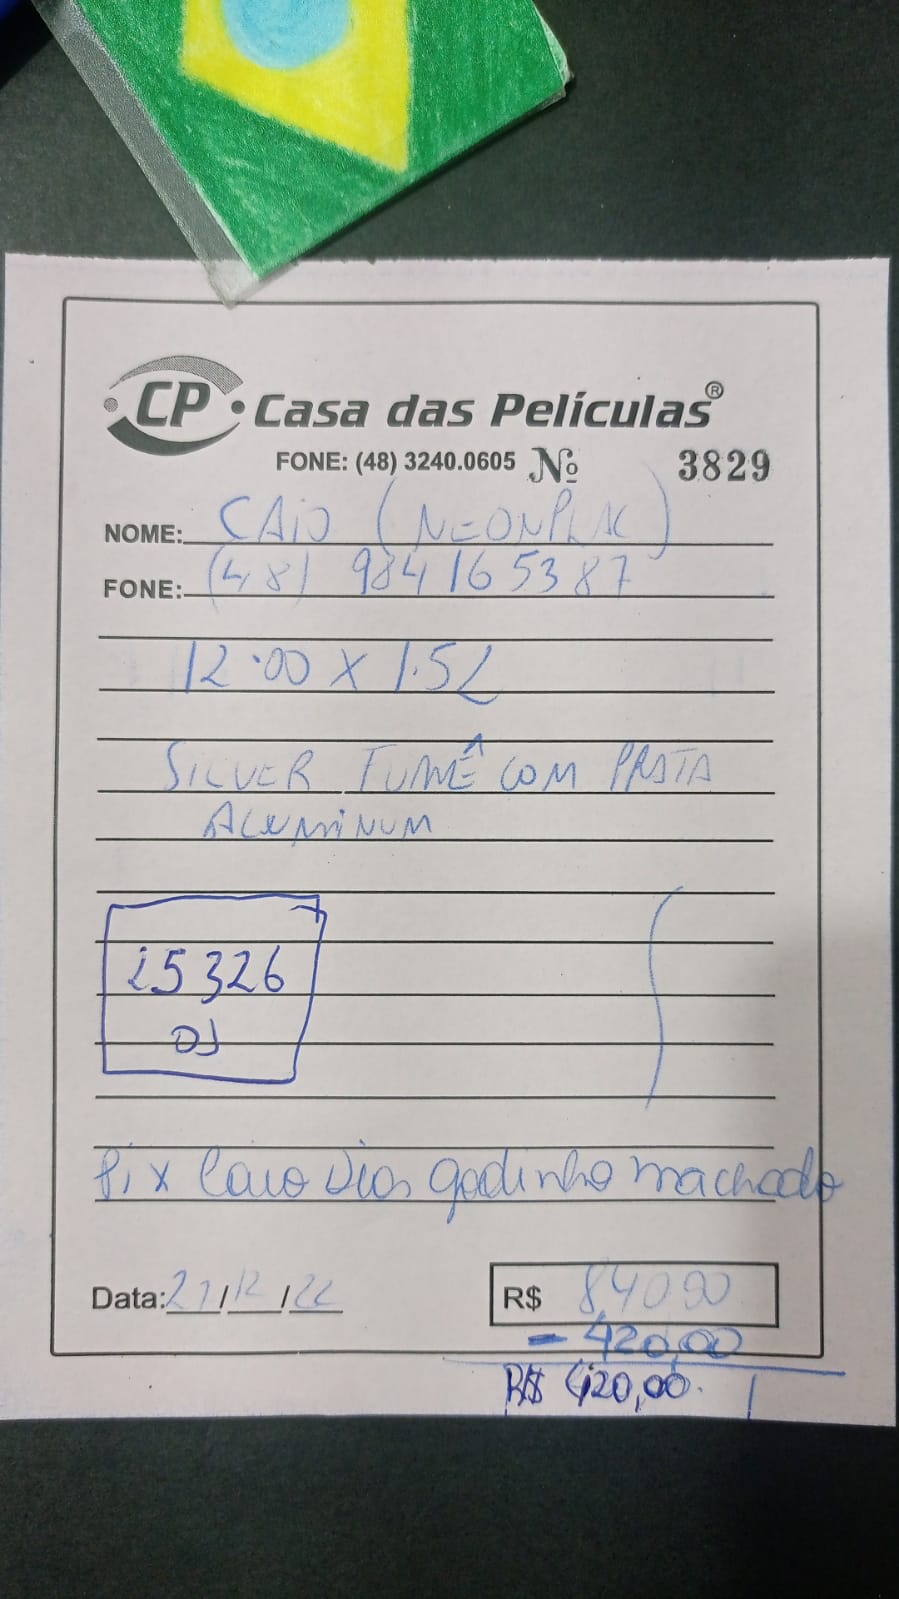 CP
Casa das Películas®
FONE: (48) 3240.0605 No 3829
NOME: CAIO (NEONPLAC)
FONE: (48) 984165387
12.00 X 1.52
SILVER FUMÊ COM PRATA
ALUMINUM
25326
Pix Caio Dias godinho machado
Data: 21/12/22 R$ 840,00
- 420,00
R$ 420,00.